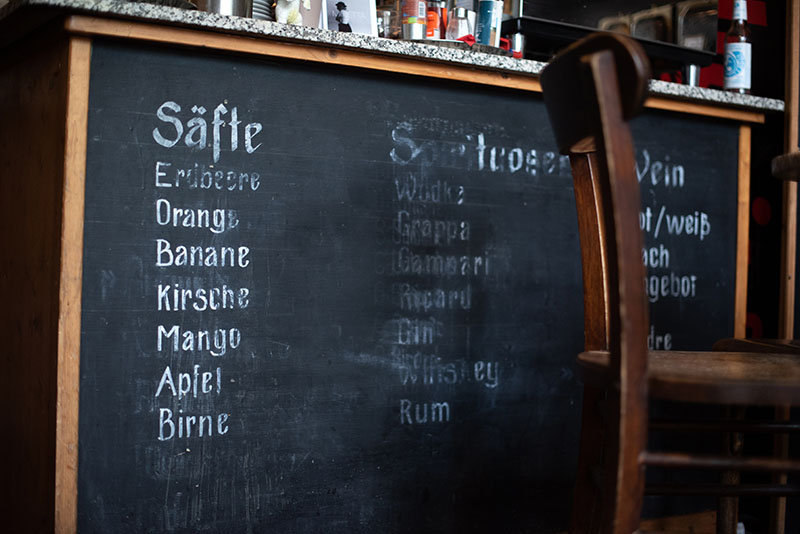 Säfte
Erdbeere
Orange
Banane
Kirsche
Mango
Apfel
Birne
Spirituosen
Wodka
Grappa
Campari
Ricard
Gin
Whiskey
Rum
Wein
ot/weiß
ach
ngebot